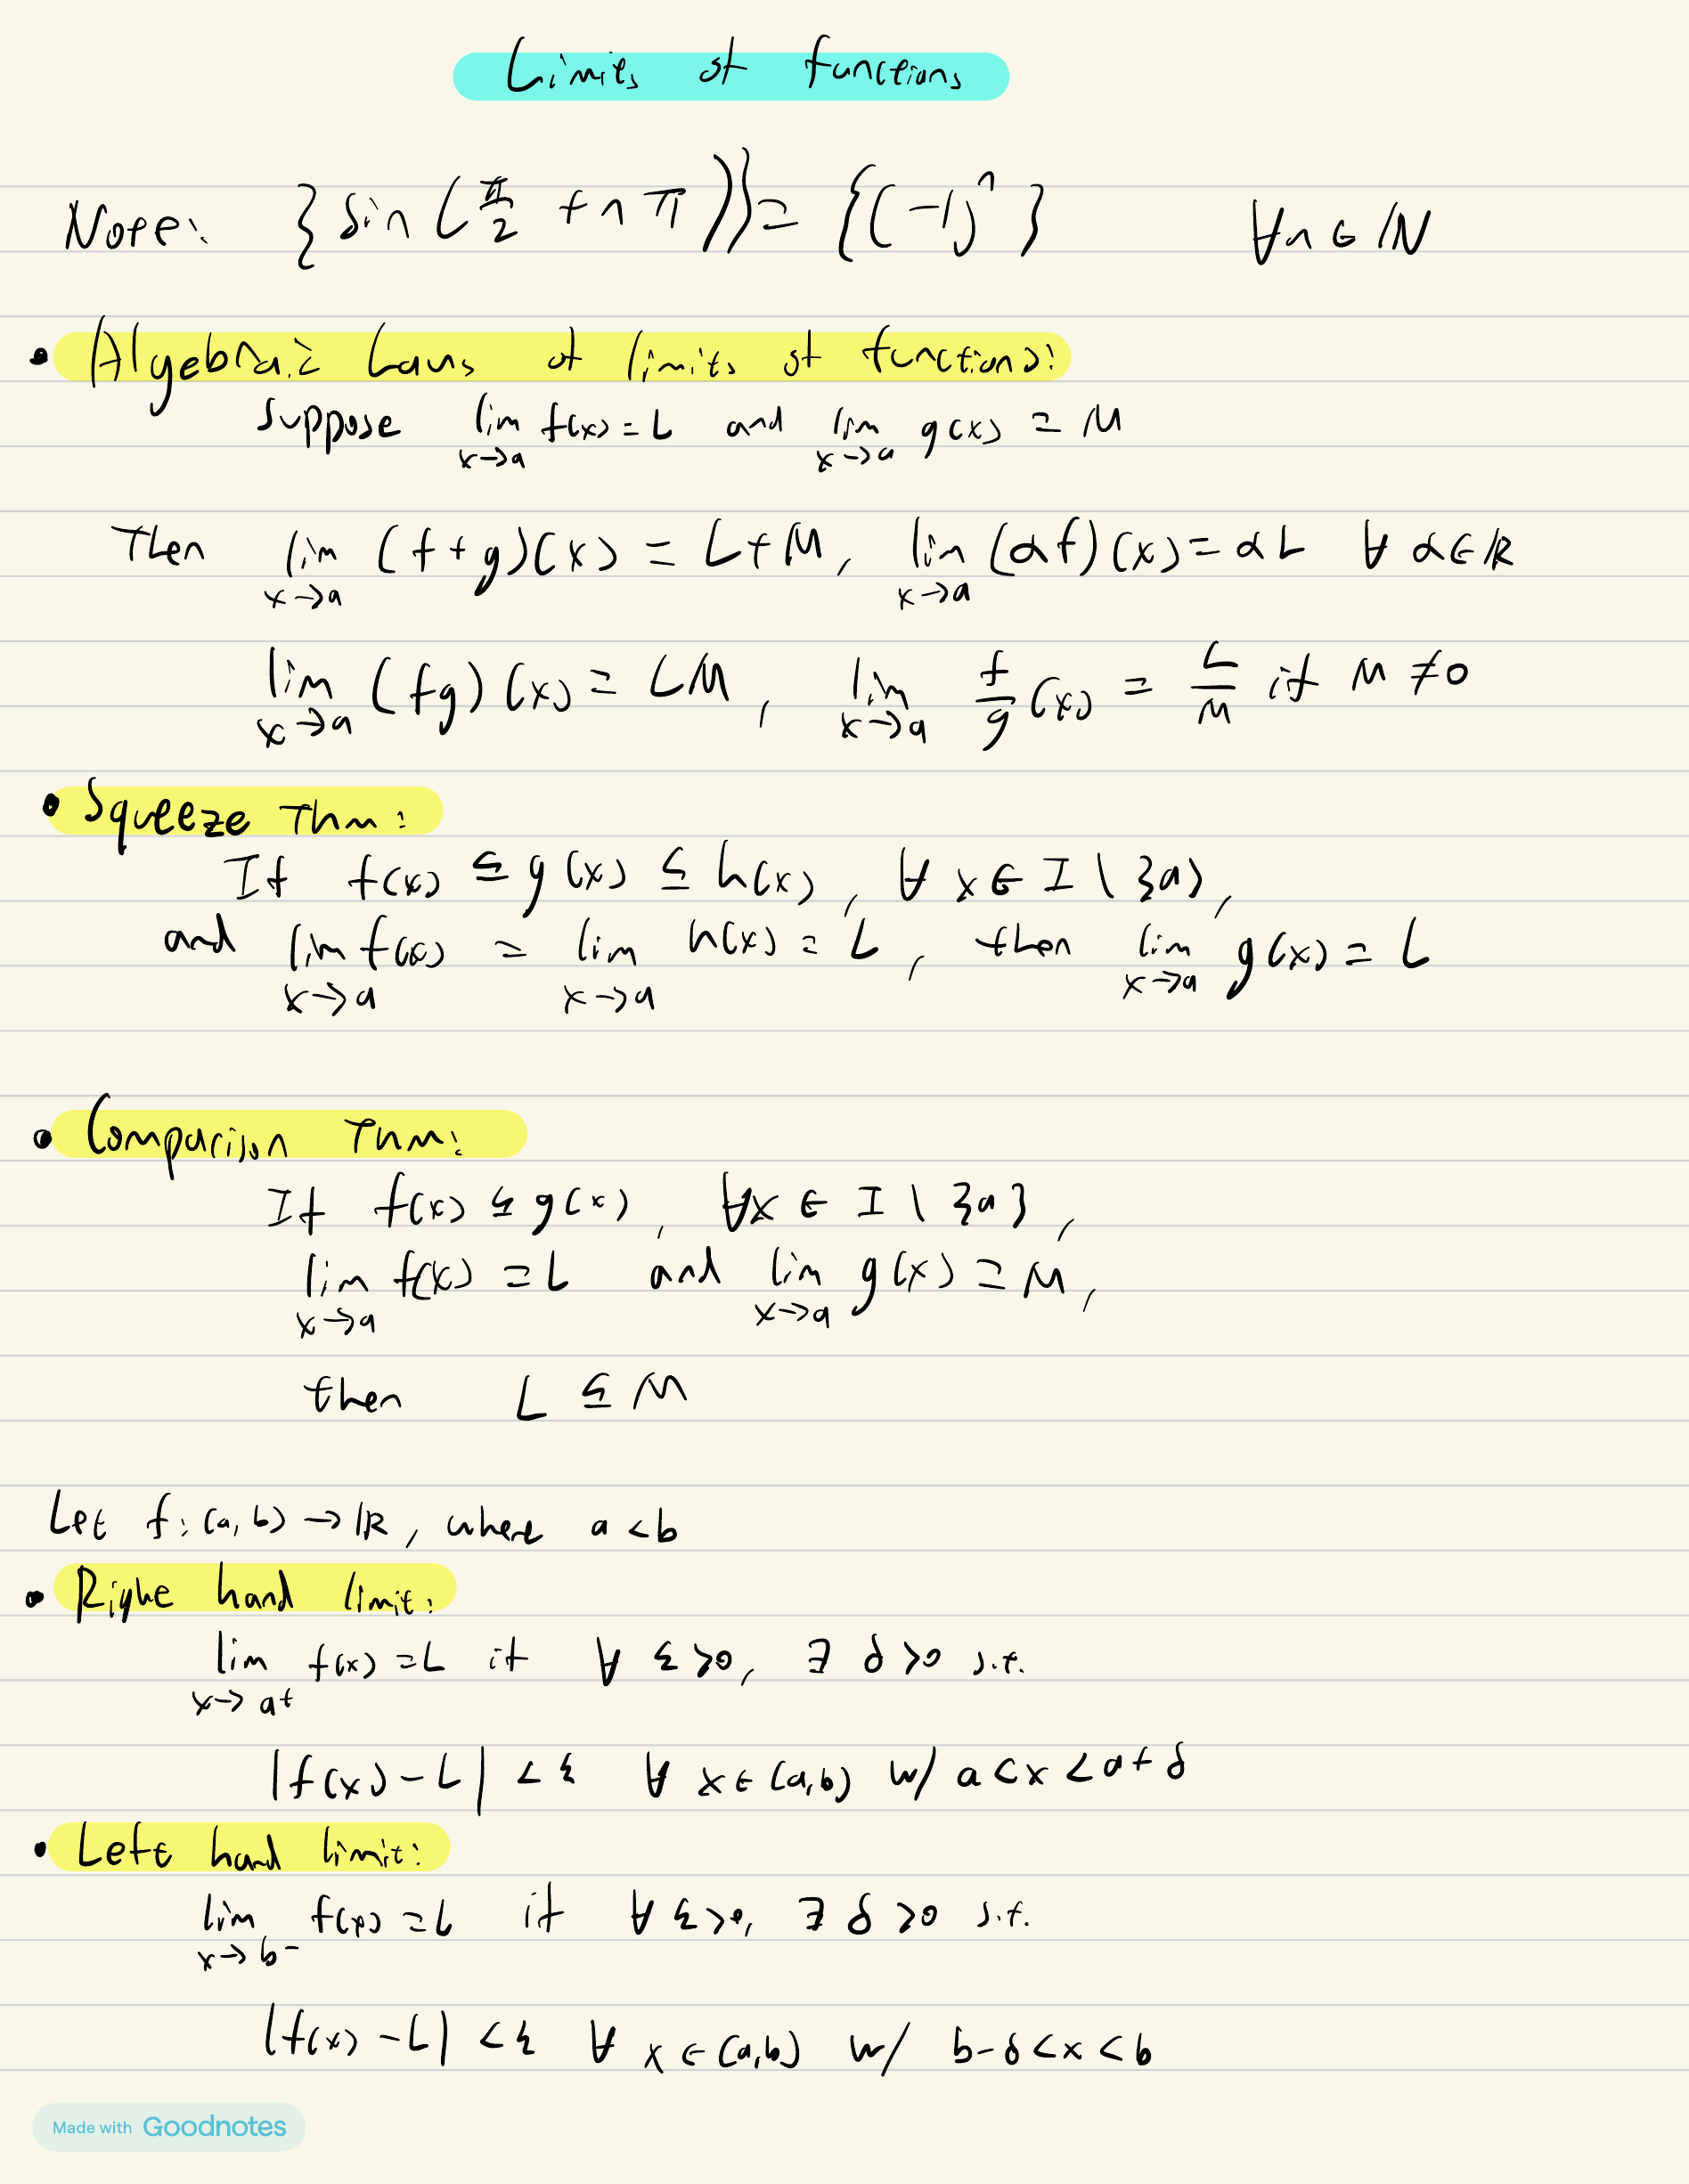 Limits of functions
Note: {sin(π/2 + nπ)} = {(-1)^n} ∀n ∈ ℕ
• Algebraic Laws of limits of functions:
Suppose lim x→a f(x) = L and lim x→a g(x) = M
Then lim x→a (f+g)(x) = L+M, lim x→a (αf)(x) = αL ∀ α∈ℝ
lim x→a (fg)(x) = LM, lim x→a f/g (x) = L/M if M ≠ 0
• Squeeze Thm:
If f(x) ≤ g(x) ≤ h(x), ∀ x ∈ I \ {a},
and lim x→a f(x) = lim x→a h(x) = L, then lim x→a g(x) = L
• Comparison Thm:
If f(x) ≤ g(x), ∀x ∈ I \ {a},
lim x→a f(x) = L and lim x→a g(x) = M,
then L ≤ M
Let f: (a,b) → ℝ, where a < b
• Right hand limit:
lim x→a+ f(x) = L if ∀ ε>0, ∃ δ>0 s.t.
|f(x) - L| < ε ∀ x ∈ (a,b) w/ a < x < a+δ
• Left hand limit:
lim x→b- f(x) = L if ∀ ε>0, ∃ δ>0 s.t.
|f(x) - L| < ε ∀ x ∈ (a,b) w/ b-δ < x < b
Made with Goodnotes